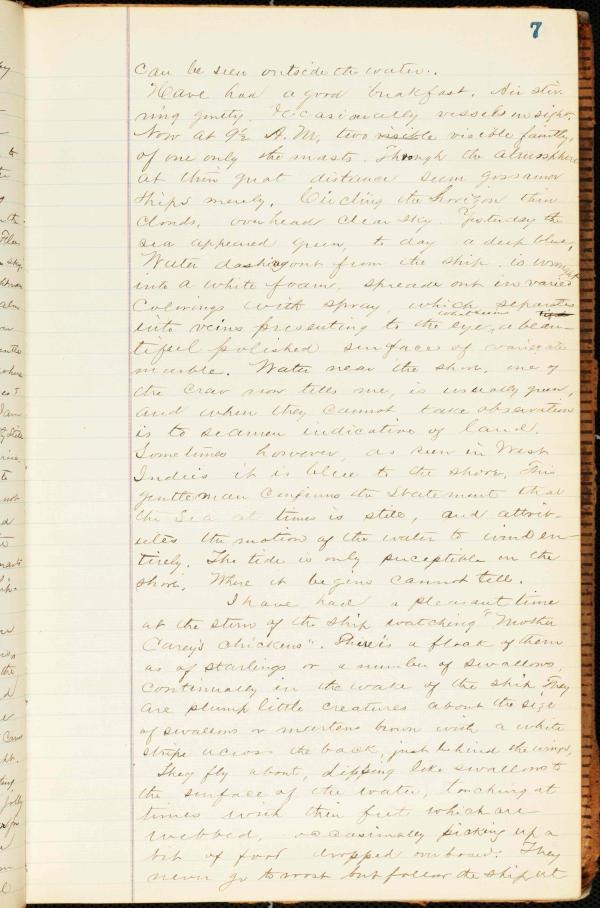 7
can be seen outside the water.
Have had a good breakfast. Air stir-
ring gently. Occasionally vessels in sight.
Now at 9½ A.M. two visible visible faintly,
of one only the masts. Through the atmosphere
at this great distance seem gossamer
ships merely. Circling the horizon thin
clouds, overhead clear sky. Yesterday the
sea appeared green, to day a deep blue.
Water dashing out from the ship is
into a white foam, spreads out in varied
colorings with spray, which separates
into veins presenting to the eye, what seems a beau-
tifull polished surface of variegate
marble. Water near the shore, one of
the crew now tells me, is usually green,
and when they cannot take observation
is to seamen indicative of land.
Sometimes however, as seen in West
Indies it is blue to the shore. This
gentleman confirms the statement that
the Sea at times is still, and attrib-
utes the motion of the water to wind en-
tirely. The tide is only suceptible on the
shore. Where it begins cannot tell.
I have had a pleasant time
at the stern of the ship watching "Mother
Carey's chickens". There is a flock of them
as of starlings or a number of swallows,
continually in the wake of the ship. They
are plump little creatures about the size
of swallows or martens brown with a white
stripe across the back, just behind the wings.
They fly about, dipping like swallows to
the surface of the water, touching at
times with their feet which are
webbed, occasionally picking up a
bit of food dropped overboard. They
never go to roost but follow the ship at